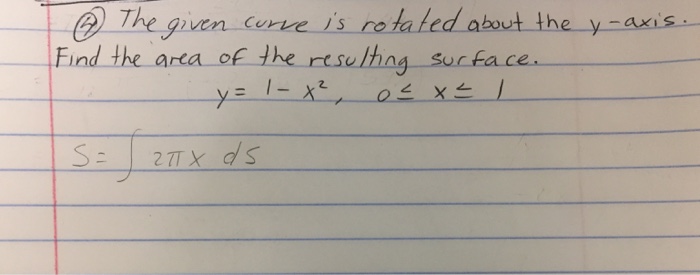 ④ The given curve is rotated about the y-axis.
Find the area of the resulting surface.
y = 1 - x², 0 ≤ x ≤ 1
S = ∫ 2πx ds